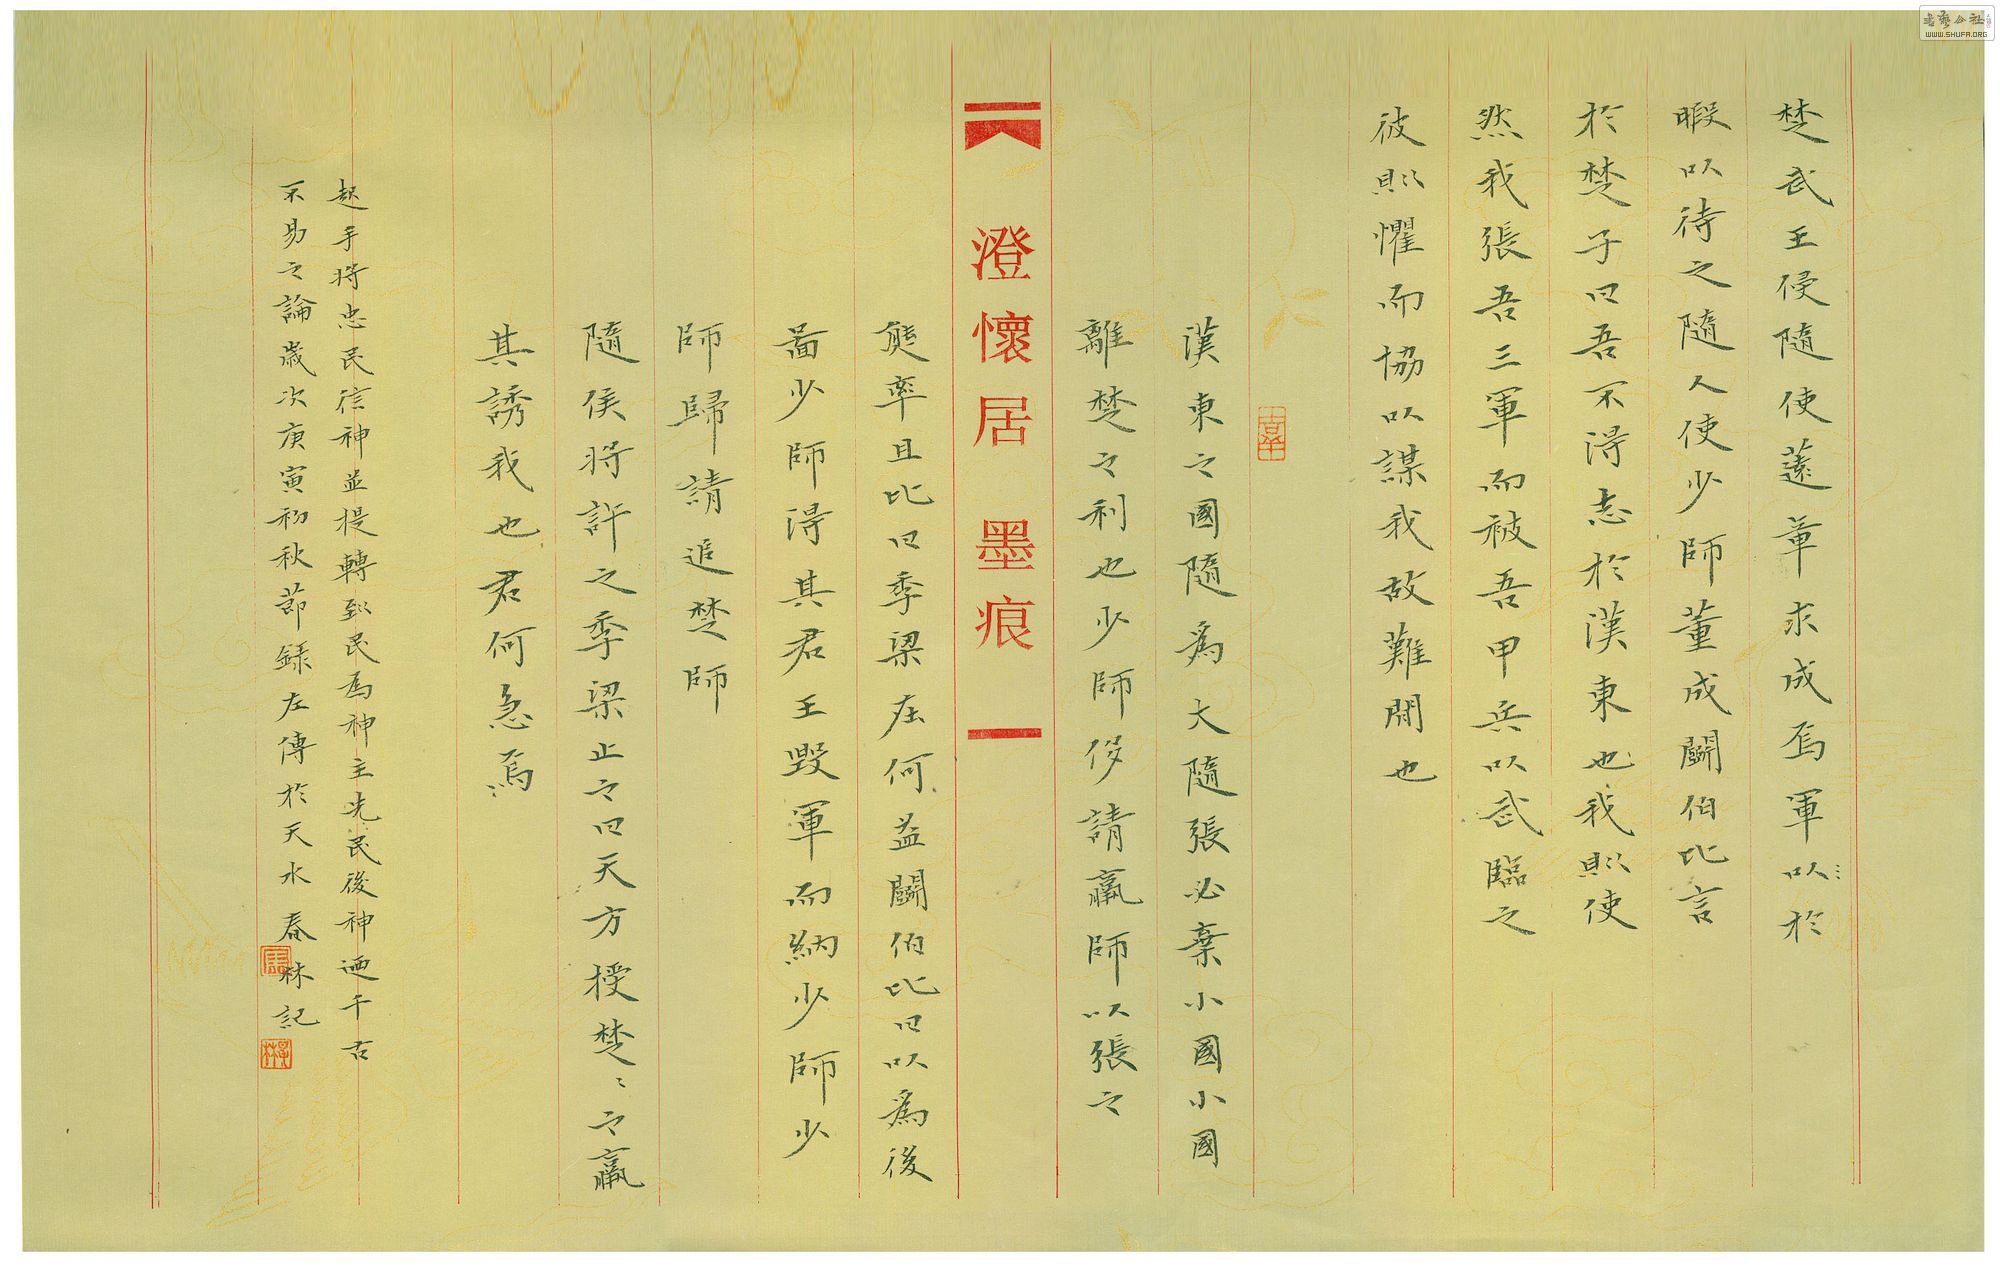 楚武王侵隨使薳章求成焉軍以於
暇以待之隨人使少師董成鬭伯比言
於楚子曰吾不得志於漢東也我則使
然我張吾三軍而被吾甲兵以武臨之
彼則懼而協以謀我故難間也
漢東之國隨為大隨張必棄小國小國
離楚之利也少師侈請羸師以張之
澄懷居 墨痕
熊率且比曰季梁在何益鬭伯比曰以為後
圖少師得其君王毀軍而納少師少
師歸請追楚師
隨侯將許之季梁止之曰天方授楚楚之羸
其誘我也君何急焉
起手將忠民信神並提轉到民為神主先民後神迺千古
不易之論歲次庚寅初秋節錄左傳於天水春林記
書藝公社
WWW.SHUFA.ORG